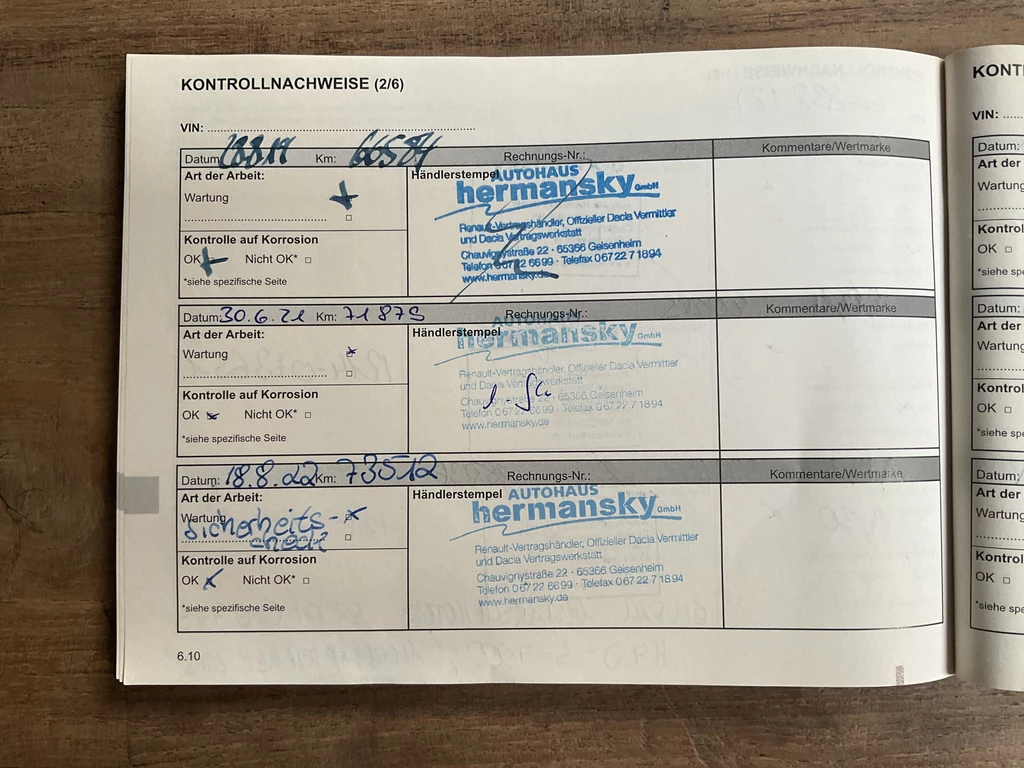 KONTROLLNACHWEISE (2/6)
VIN:
Datum: 28.8.19 Km: 66584 Rechnungs-Nr.: Kommentare/Wertmarke
Art der Arbeit: Händlerstempel
Wartung
AUTOHAUS
hermansky GmbH
Renault-Vertragshändler, Offizieller Dacia Vermittler
und Dacia Vertragswerkstatt
Chauvignystraße 22 · 65366 Geisenheim
Telefon 0 67 22 66 99 · Telefax 0 67 22 7 18 94
www.hermansky.de
Kontrolle auf Korrosion
OK Nicht OK*
*siehe spezifische Seite
Datum: 30.6.21 Km: 71879 Rechnungs-Nr.: Kommentare/Wertmarke
Art der Arbeit: Händlerstempel
Wartung
AUTOHAUS
hermansky GmbH
Renault-Vertragshändler, Offizieller Dacia Vermittler
und Dacia Vertragswerkstatt
Chauvignystraße 22 · 65366 Geisenheim
Telefon 0 67 22 66 99 · Telefax 0 67 22 7 18 94
www.hermansky.de
Kontrolle auf Korrosion
OK Nicht OK*
*siehe spezifische Seite
Datum: 18.8.22 Km: 73512 Rechnungs-Nr.: Kommentare/Wertmarke
Art der Arbeit: Händlerstempel
Wartung
Sicherheits-
check
AUTOHAUS
hermansky GmbH
Renault-Vertragshändler, Offizieller Dacia Vermittler
und Dacia Vertragswerkstatt
Chauvignystraße 22 · 65366 Geisenheim
Telefon 0 67 22 66 99 · Telefax 0 67 22 7 18 94
www.hermansky.de
Kontrolle auf Korrosion
OK Nicht OK*
*siehe spezifische Seite
6.10
KONT
VIN:
Datum:
Art der
Wartung
Kontrol
OK
*siehe spe
Datum:
Art der
Wartung
Kontrol
OK
*siehe spe
Datum:
Art der
Wartung
Kontrol
OK
*siehe spe